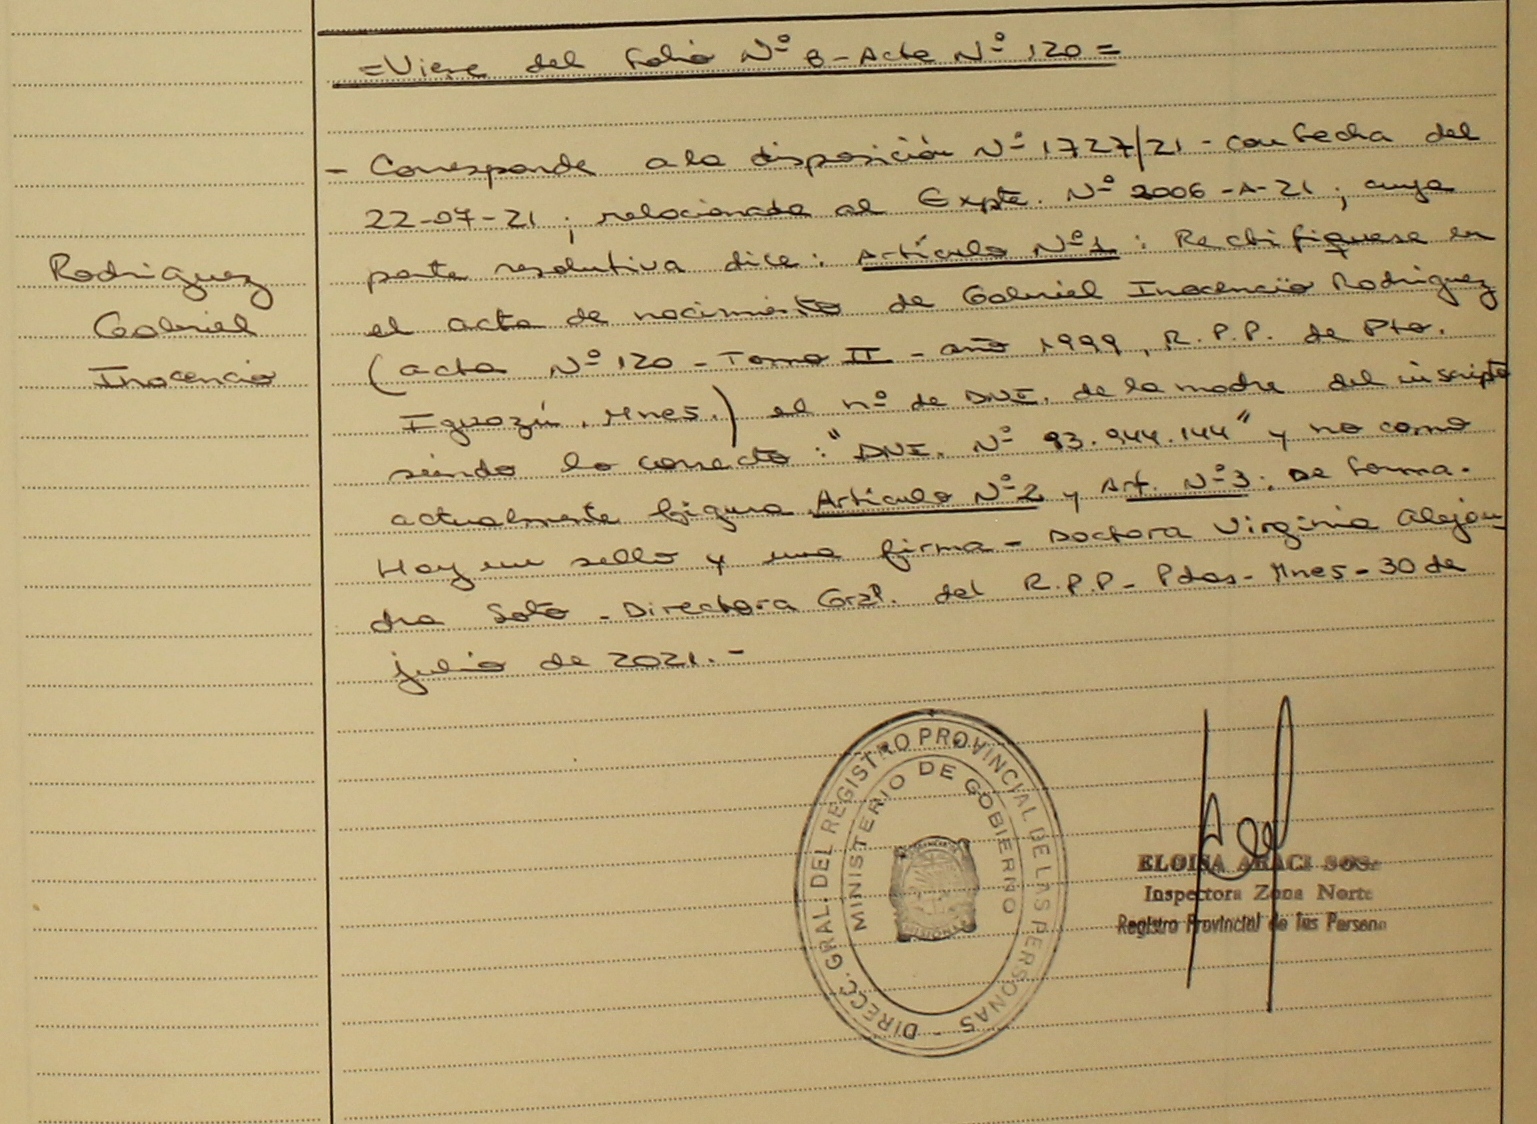 =Viene del Folio Nº 8-Acta Nº 120=
- Corresponde a la disposición Nº 1727/21 - con fecha del
22-07-21; relacionada al Expte. Nº 2006-A-21; cuya
parte resolutiva dice: Artículo Nº1: Rectifíquese en
Rodriguez
Gabriel
Inocencio
el acta de nacimiento de Gabriel Inocencio Rodriguez
(acta Nº 120 - Tomo II - año 1999, R.P.P. de Pto.
Iguazú, Mnes.) el nº de DNI. de la madre del inscripto
siendo lo correcto: "DNI. Nº 93.944.144" y no como
actualmente figura Artículo Nº2 y Art. Nº3: De forma.
Hay un sello y una firma - Doctora Virginia Alejan-
dra Soto - Directora Gral. del R.P.P - Pdas - Mnes - 30 de
julio de 2021.-
DIRECC. GRAL. DEL REGISTRO PROVINCIAL DE LAS PERSONAS -
MINISTERIO DE GOBIERNO
MISIONES
ELOISA ARACI SOSA
Inspectora Zona Norte
Registro Provincial de las Persona